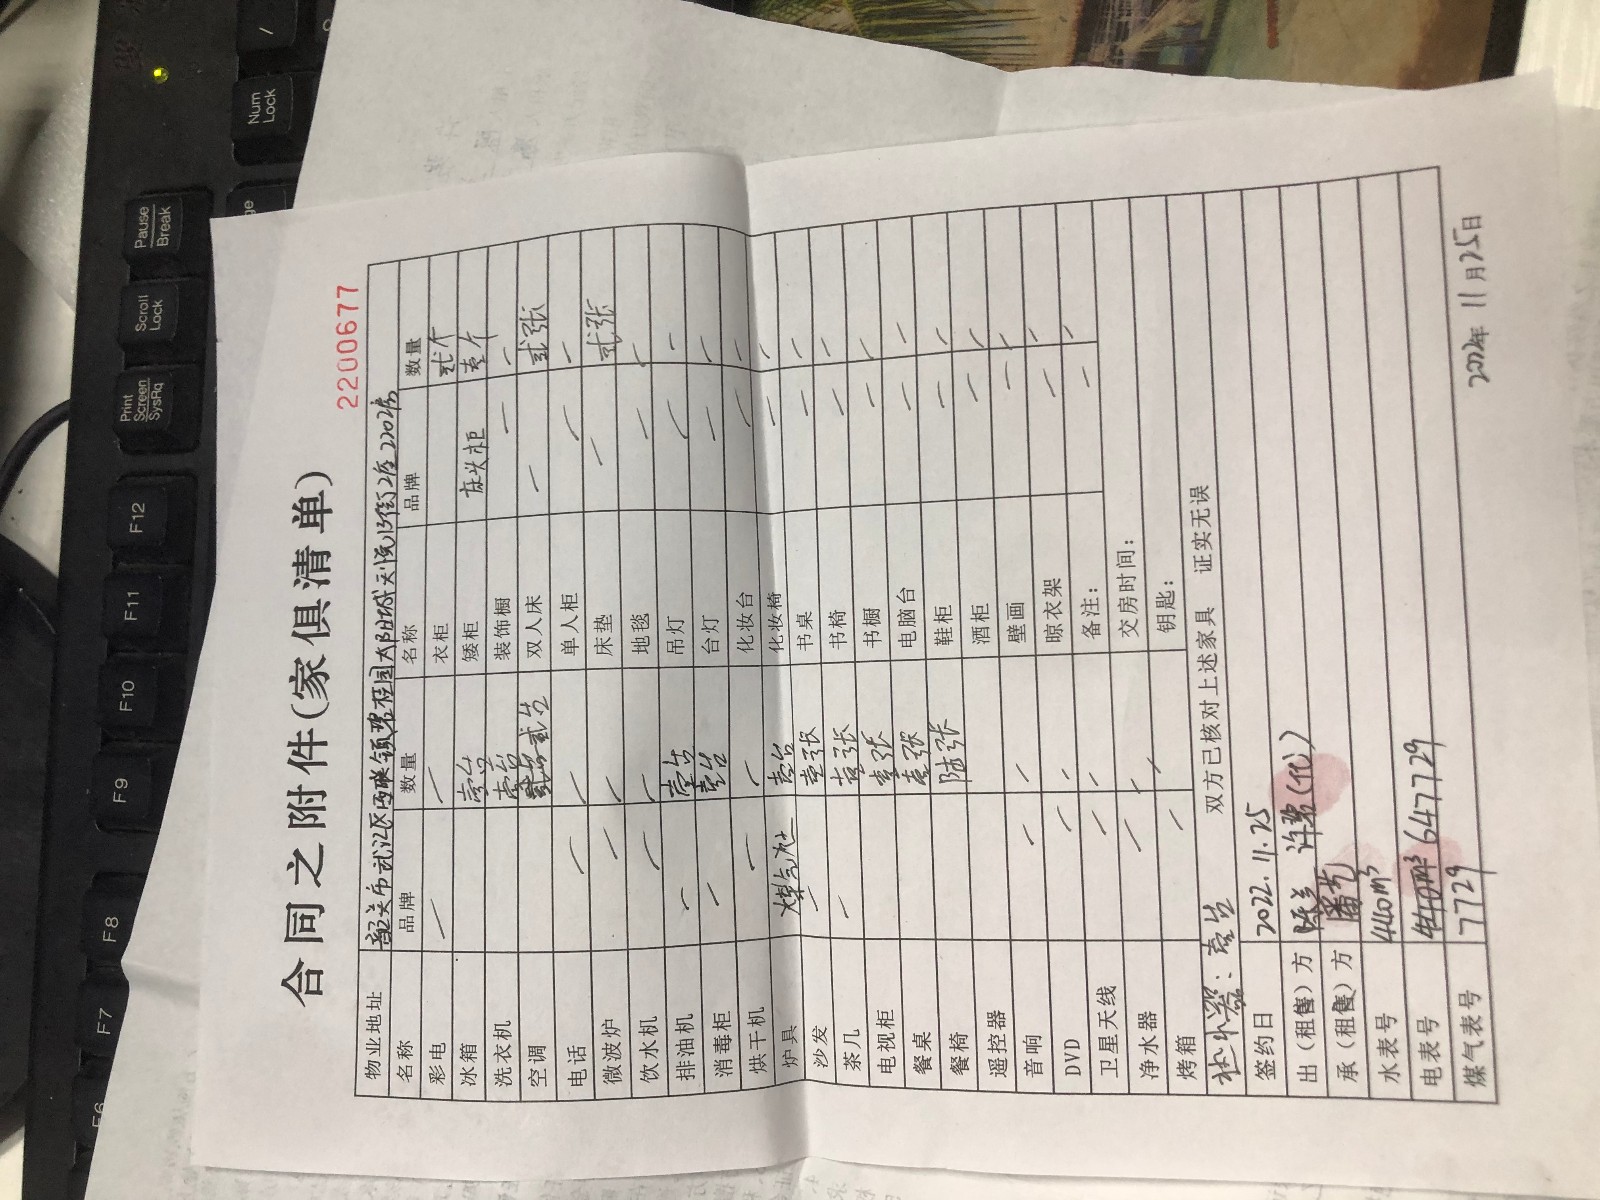 2200677
合同之附件(家俱清单)
物业地址 韶关市武江区西联镇碧桂园太阳城天悦13街2座2702房
名称 品牌 数量 名称 品牌 数量
彩电 / / 衣柜 贰个
冰箱 壹台 矮柜 床头柜 壹个
洗衣机 壹台 装饰橱 / /
空调 贰台 双人床 / 贰张
电话 / / 单人柜 / /
微波炉 / / 床垫 / 贰张
饮水机 / / 地毯 / /
排油机 / 壹台 吊灯 / /
消毒柜 / 壹台 台灯 / /
烘干机 / / 化妆台 / /
炉具 煤气灶 壹台 化妆椅 / /
沙发 / 壹张 书桌 / /
茶几 / 壹张 书椅 / /
电视柜 壹张 书橱 / /
餐桌 壹张 电脑台 / /
餐椅 陆张 鞋柜 / /
遥控器 酒柜 / /
音响 / / 壁画 / /
DVD / / 晾衣架 / /
卫星天线 / / 备注:
净水器 / / 交房时间:
烤箱 / / 钥匙:
热水器:壹台 双方已核对上述家具 证实无误
签约日 2022.11.25
出(租售)方
承(租售)方
水表号 440m³
电表号 647729
煤气表号 7729
2022年 11月25日
Print Screen SysRq
Scroll Lock
Pause Break
Num Lock
/
F6
F7
F8
F9
F10
F11
F12